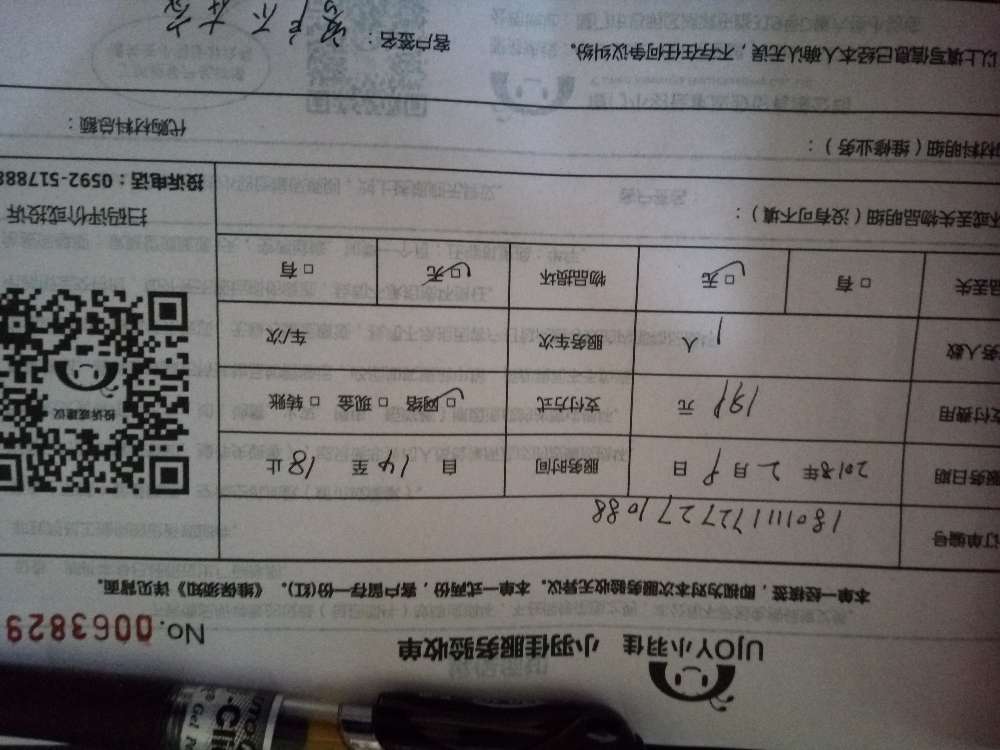 UJOY小羽佳 小羽佳服务验收单
No. 0063829
本单一经核签，即视为对本次服务验收无异议。本单一式两份，客户留存一份(红)。《维保须知》详见背面。
订单编号 180111172771088
服务日期 2018年2月9日 服务时间 自14至18止
支付费用 191元 支付方式 网络 现金 转账
务人数 1人 服务车次 车/次
品丢失 有 无 物品损坏 无 有
投诉或建议
扫码评价或投诉
投诉电话：0592-517888
坏或丢失物品明细（没有可不填）：
材料明细（维修业务）：
代购材料总额：
以上填写信息已经本人确认无误，不存在任何争议纠纷。
客户签名：